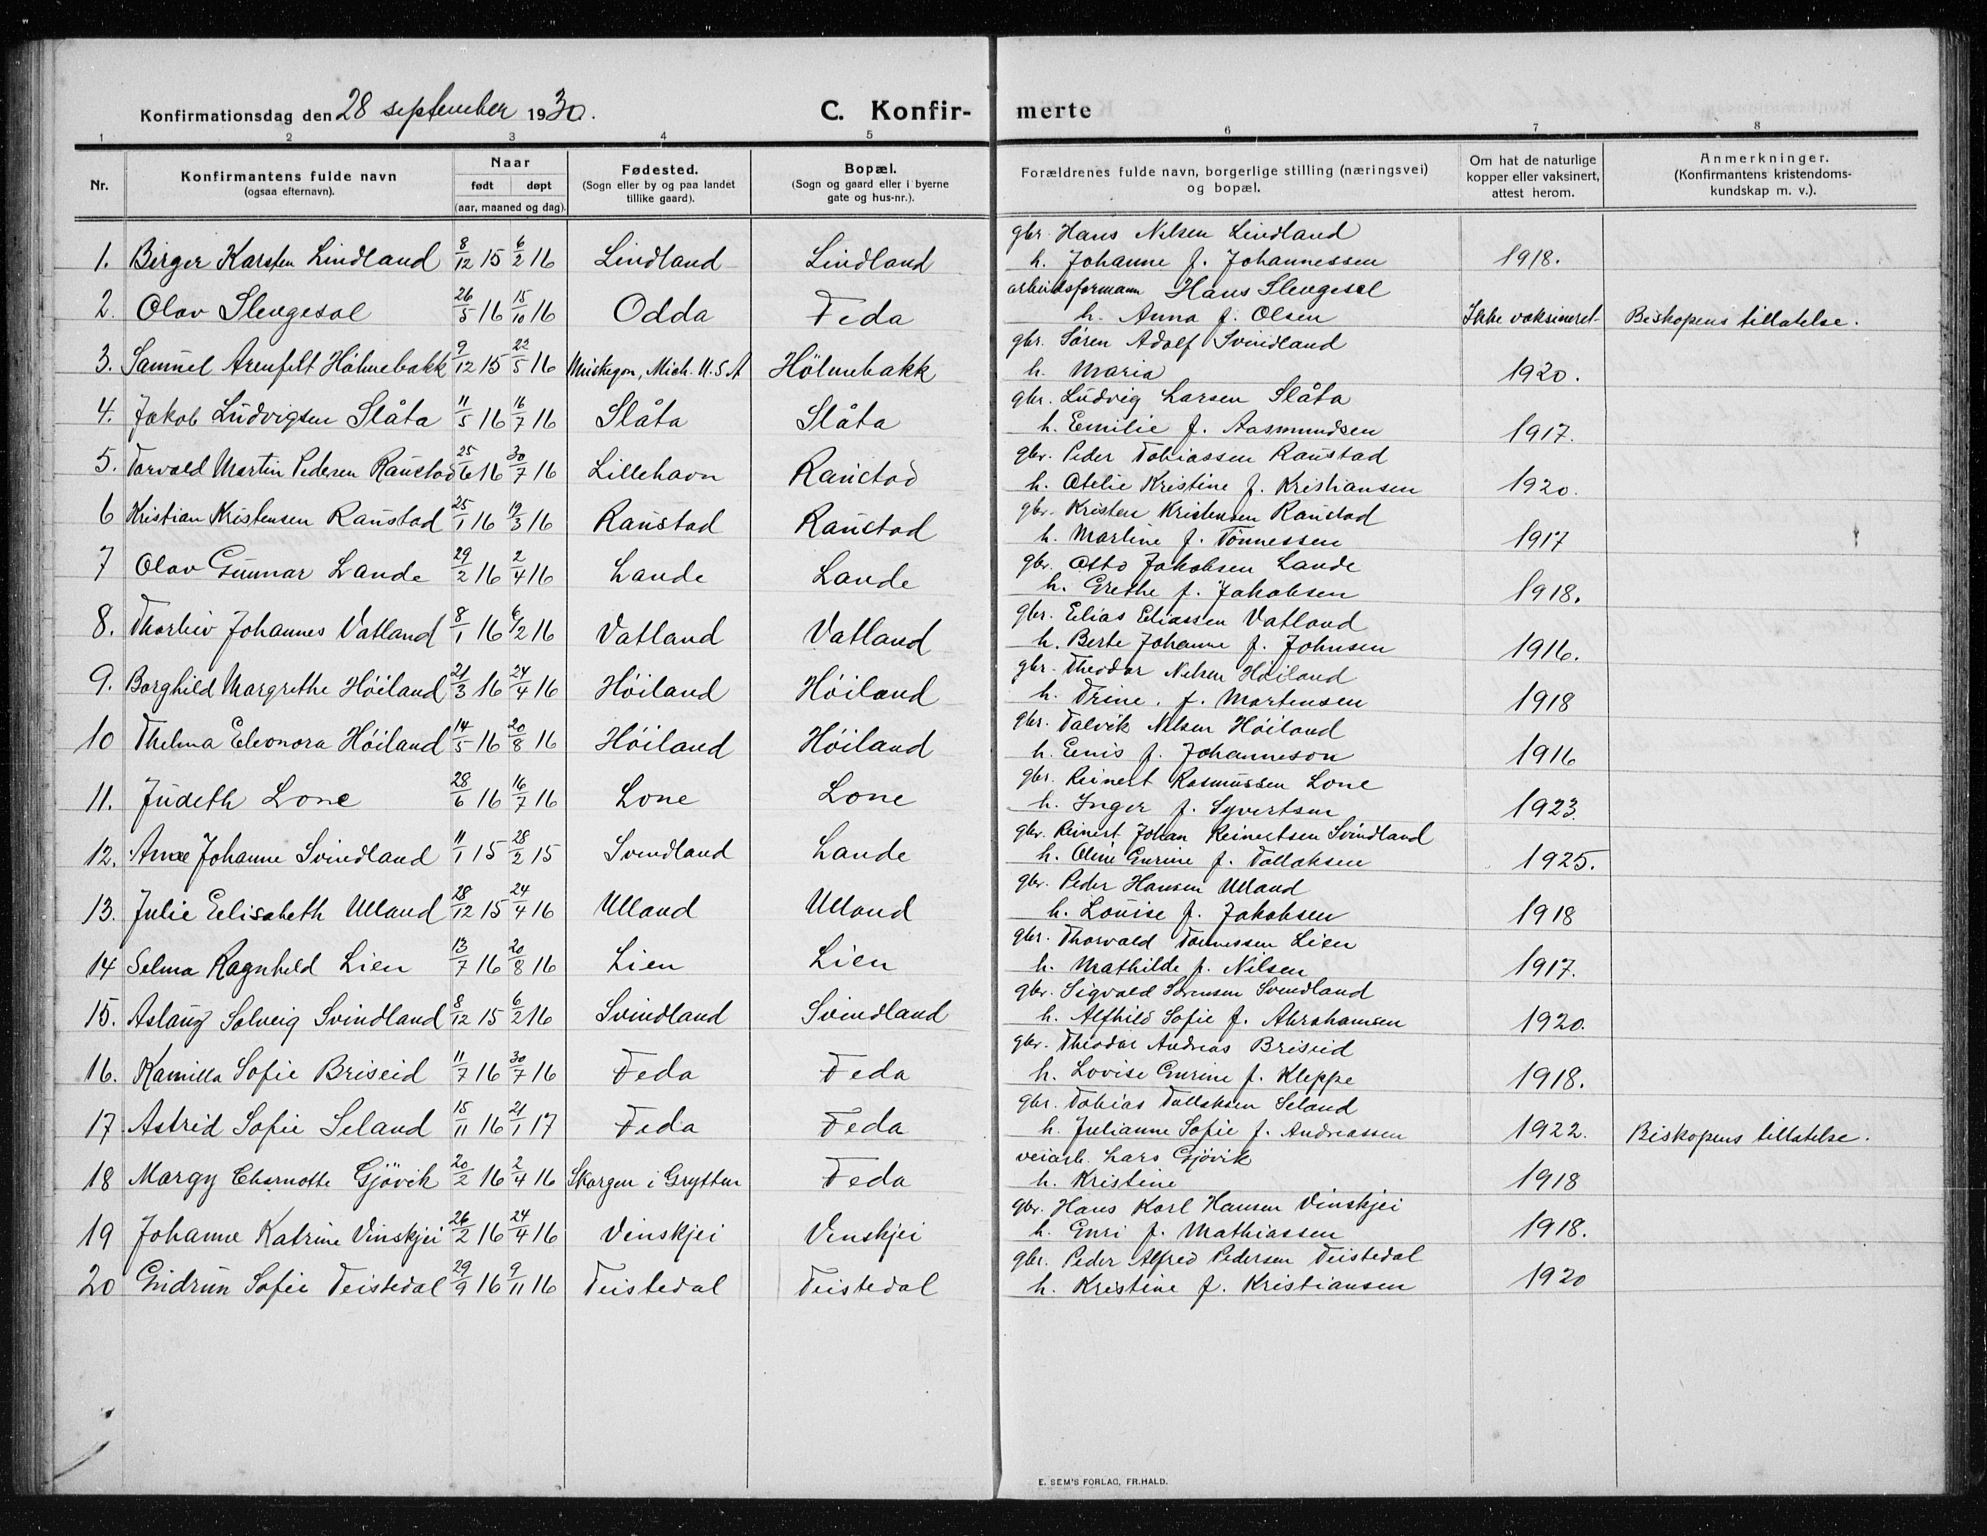 Konfirmationsdag den 28 september 1930. C. Konfir- merte
1 2 3 4 5 6 7 8
Nr. Konfirmantens fulde navn (ogsaa efternavn). Naar født døpt (aar, maaned og dag). Fødested. (Sogn eller by og paa landet tillike gaard). Bopæl. (Sogn og gaard eller i byerne gate og hus-nr.). Forældrenes fulde navn, borgerlige stilling (næringsvei) og bopæl. Om hat de naturlige kopper eller vaksinert, attest herom. Anmerkninger. (Konfirmantens kristendoms-kundskap m. v.).
gbr. Hans Nilsen Lindland
1. Birger Karsten Lindland 8/12 15 6/2 16 Lindland Lindland h. Johanne f. Johannessen 1918.
arbeidsformann Hans Slengesol
2. Olav Slengesol 26/5 16 15/10 16 Odda Feda h. Anna f. Olsen Ikke vaksineret Biskopens tillatelse.
gbr. Søren Adolf Svindland
3. Samuel Arenfelt Hölmebakk 9/12 15 22/5 16 Muskegon, Mich. U.S.A Hölmebakk h. Maria 1920.
gbr. Ludvig Larsen Slåta
4. Jakob Ludvigsen Slåta 11/5 16 16/7 16 Slåta Slåta h. Emilie f. Aasmundsen 1917.
gbr. Peder Tobiassen Raustad
5. Torvald Martin Pedersen Raustad 25/6 16 30/7 16 Lillehavn Raustad h. Otelie Kristine f. Kristiansen 1920.
gbr. Kristen Kristensen Raustad
6 Kristian Kristensen Raustad 25/1 16 19/3 16 Raustad Raustad h. Martine f. Tönnessen 1917
gbr. Otto Jakobsen Lande
7 Olav Gunnar Lande 29/2 16 2/4 16 Lande Lande h. Grethe f. Jakobsen 1918.
gbr. Elias Eliassen Vatland
8. Thorleiv Johannes Vatland 8/1 16 6/2 16 Vatland Vatland h. Berte Johanne f. Johnsen 1916.
gbr. Theodor Nilsen Höiland
9. Borghild Margrethe Höiland 21/3 16 24/4 16 Höiland Höiland h. Trine f. Martensen 1918
gbr. Talvik Nilsen Höiland
10 Thelma Eleonora Höiland 14/5 16 20/8 16 Höiland Höiland h. Enis f. Johanneson 1916
gbr. Reinert Rasmussen Lone
11. Judeth Lone 28/6 16 16/7 16 Lone Lone h. Inger f. Syvertsen 1923.
gbr. Reinert Johan Reinertsen Svindland
12. Anne Johanne Svindland 11/1 15 28/2 15 Svindland Lande h. Oline Gurine f. Tollaksen 1925.
gbr. Peder Hansen Ulland
13. Julie Elisabeth Ulland 28/12 15 24/4 16 Ulland Ulland h. Louise f. Jakobsen 1918
gbr. Thorvald Tönnessen Lien
14 Selma Ragnhild Lien 13/7 16 20/8 16 Lien Lien h. Mathilde f. Nilsen 1917.
gbr. Sigvald Sørensen Svindland
15. Aslaug Solveig Svindland 8/12 15 6/2 16 Svindland Svindland h. Alfhild Sofie f. Abrahamsen 1920.
gbr. Theodor Andreas Briseid
16. Kamilla Sofie Briseid 11/7 16 30/7 16 Feda Feda h. Lovise Gurine f. Kleppe 1918.
gbr. Tobias Tollaksen Seland
17 Astrid Sofie Seland 15/11 16 21/1 17 Feda Feda h. Julianne Sofie f. Andreassen 1922. Biskopens tillatelse.
veiarb. Lars Gjövik
18 Margy Charnotte Gjövik 20/2 16 2/4 16 Skorgen i Grytten Feda h. Kristine 1918
gbr. Hans Karl Hansen Vinskjei
19 Johanne Katrine Vinskjei 26/2 16 24/4 16 Vinskjei Vinskjei h. Guri f. Mathiassen 1918.
gbr. Peder Alfred Pedersen Teistedal
20 Gudrun Sofie Teistedal 29/9 16 9/11 16 Teistedal Teistedal h. Kristine f. Kristiansen 1920
E. SEM'S FORLAG, FR.HALD.